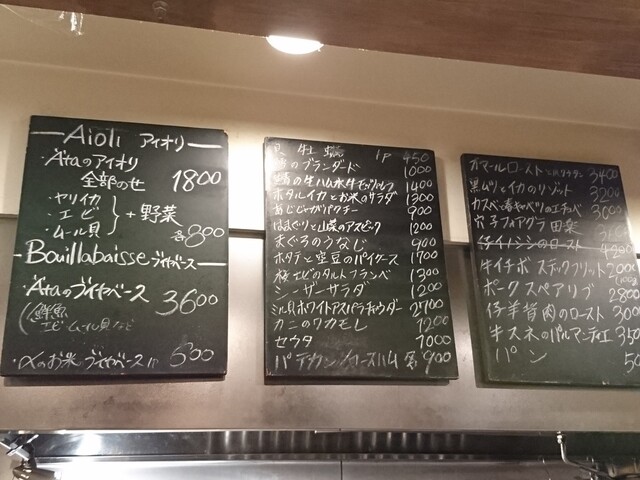 Aioli アイオリ
・Ataのアイオリ
全部のせ 1800
・ヤリイカ
・エビ
・ムール貝
+野菜
各800
Bouillabaisse ブイヤベース
・Ataのブイヤベース
3600
鮮魚
エビ ムール貝など
・αのお米 ブイヤベース 1P 500
牡蠣 1P 450
のブランダード 1000
の生ハム水牛モッツァレラ 1400
ホタルイカとお米のサラダ 1300
あじじゃがパクチー 900
はまぐりと山菜のアスピック 1200
まぐろのうなじ 900
ホタテと空豆のパイケース 1700
桜エビのタルトフランベ 1300
シーザーサラダ 1200
ミル貝ホワイトアスパラチャウダー 2700
カニのワカモレ 1200
セウタ 1000
パテカン 各900
オマールロースト 3400
黒ムツとイカのリゾット 3200
カスベと春キャベツのエチュベ 3000
穴子フォアグラ 田楽
仔イノシシのロースト 4200
牛イチボ ステックフリット 2000
ポークスペアリブ 2800
仔羊背肉のロースト 300
牛スネのパルマンティエ 350
パン 50